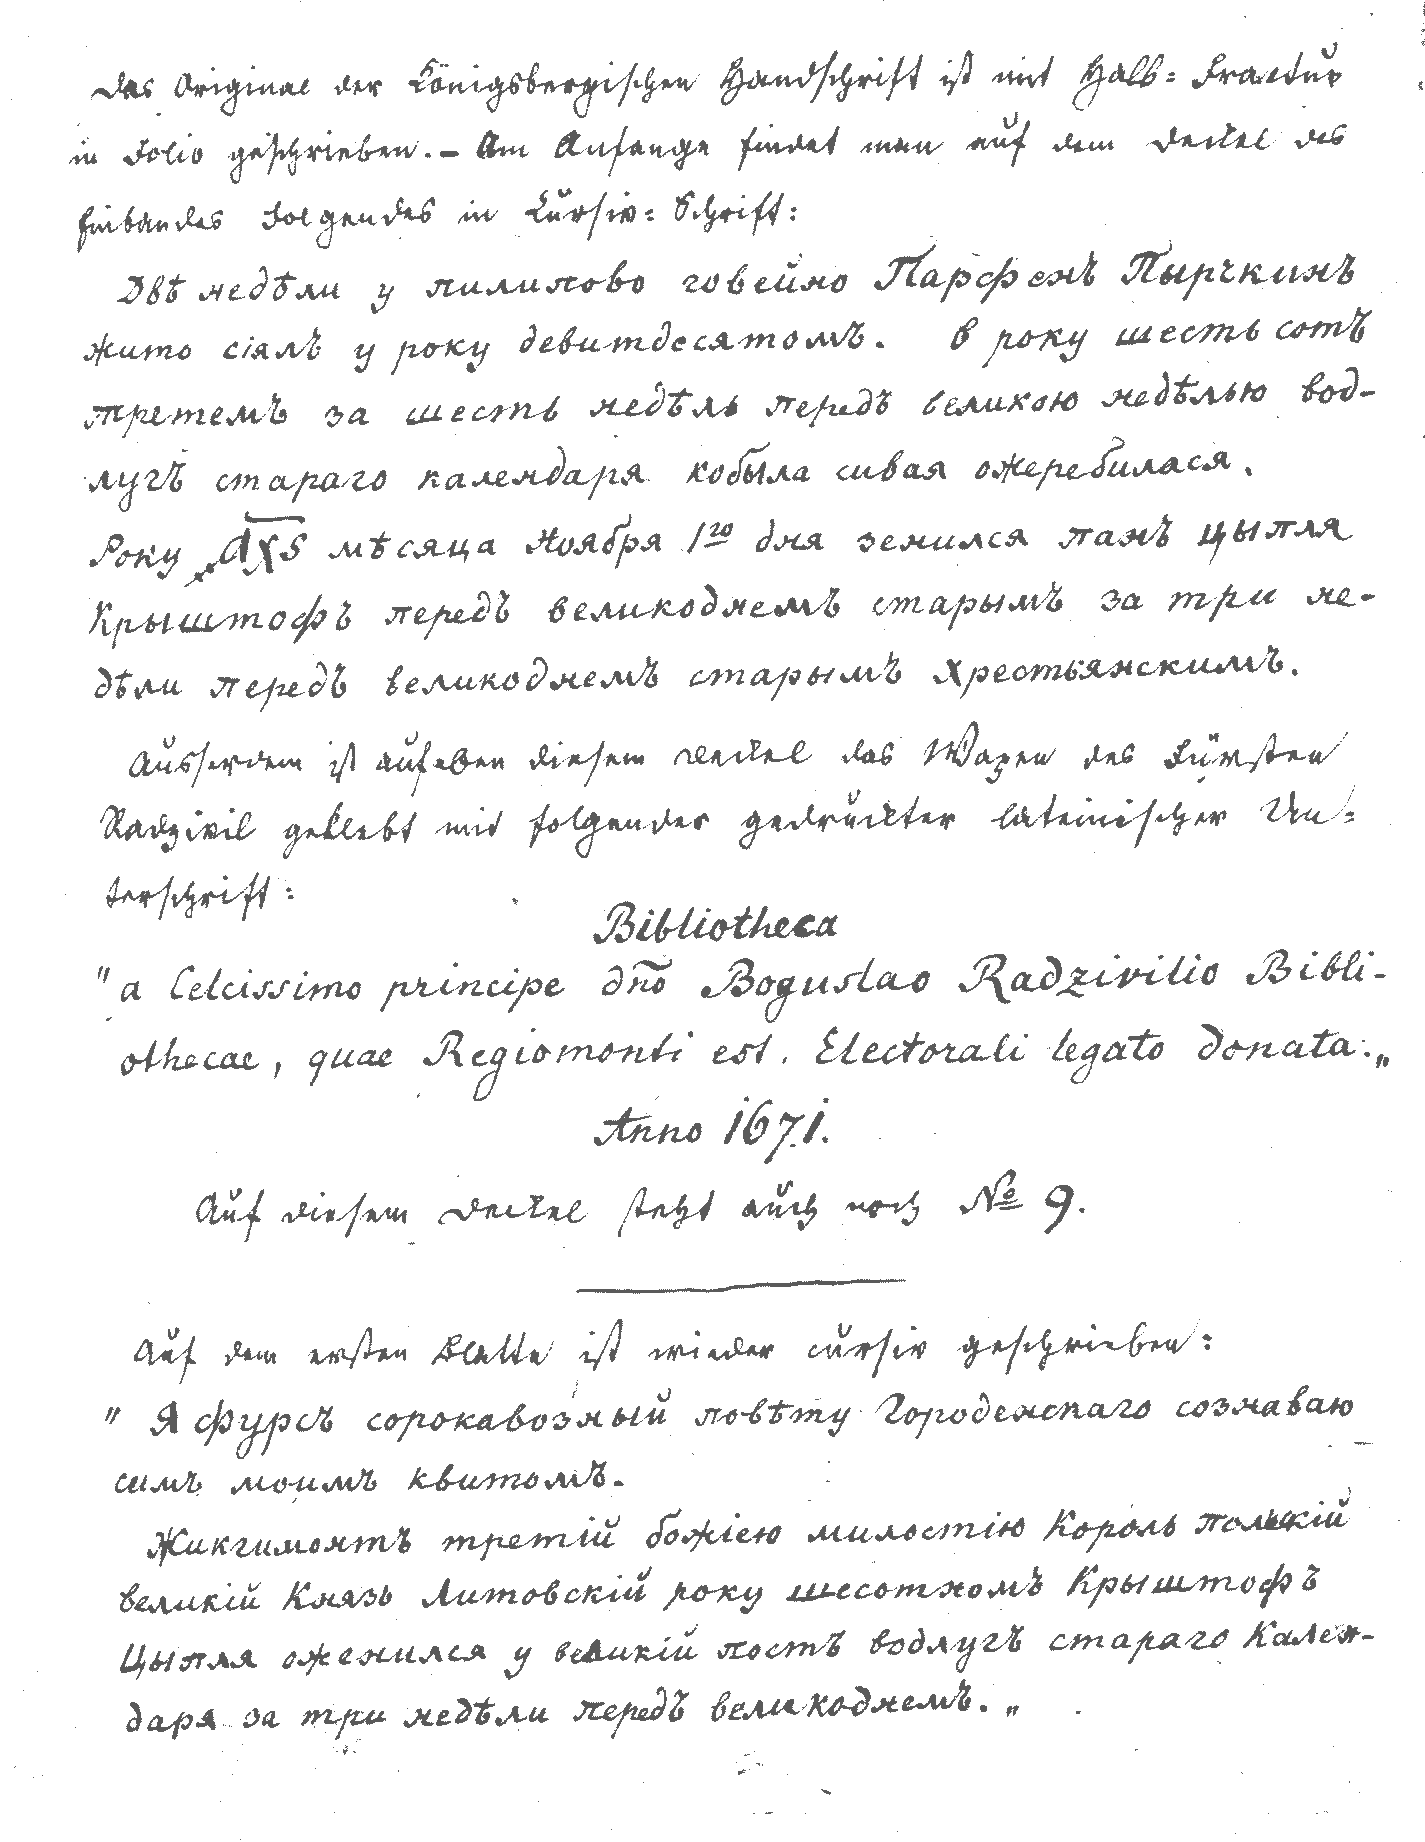 Das Original der Königsbergischen Handschrift ist mit Halb= Fractur
in Folio geschrieben. – Am Anfange findet man auf dem Deckel des
Einbandes Folgendes in Cursiv= Schrift:
Двѣ недѣли у пилипово говейно Парфенъ Пырчкинъ
жито сіялъ у року девитдесятомъ. В року шесть сотъ
третемъ за шесть недѣль передъ великою недѣлью вод-
лугъ стараго календаря кобыла сивая ожеребилася.
Року ҂аχѕ мѣсяца Ноября 1го дня зенился панъ цыпля
Крыштофъ передъ великоднемъ старымъ за три не-
дѣли передъ великоднемъ старымъ хрестьянскимъ.
Ausserdem ist auf eben diesem Deckel das Wapen des Fürsten
Radzivil geklebt mit folgender gedruckter lateinischer Un=
terschrift:
Bibliotheca
"a Celcissimo principe dño Boguslao Radzivilio Bibli-
othecae, quae Regiomonti est. Electorali legato donata."
Anno 1671.
Auf diesem Deckel steht auch noch № 9.
Auf dem ersten Blatte ist wieder cursiv geschrieben:
" Я Фурсъ сорокавозный повѣту Городенскаго сознаваю
симъ моимъ квитомъ.
Жикгимонтъ третій божіею милостію Король польскій
великій Князь Литовскій року шесотномъ Крыштофъ
Цыпля оженился у великій постъ водлугъ стараго Кален-
даря за три недѣли передъ великоднемъ."